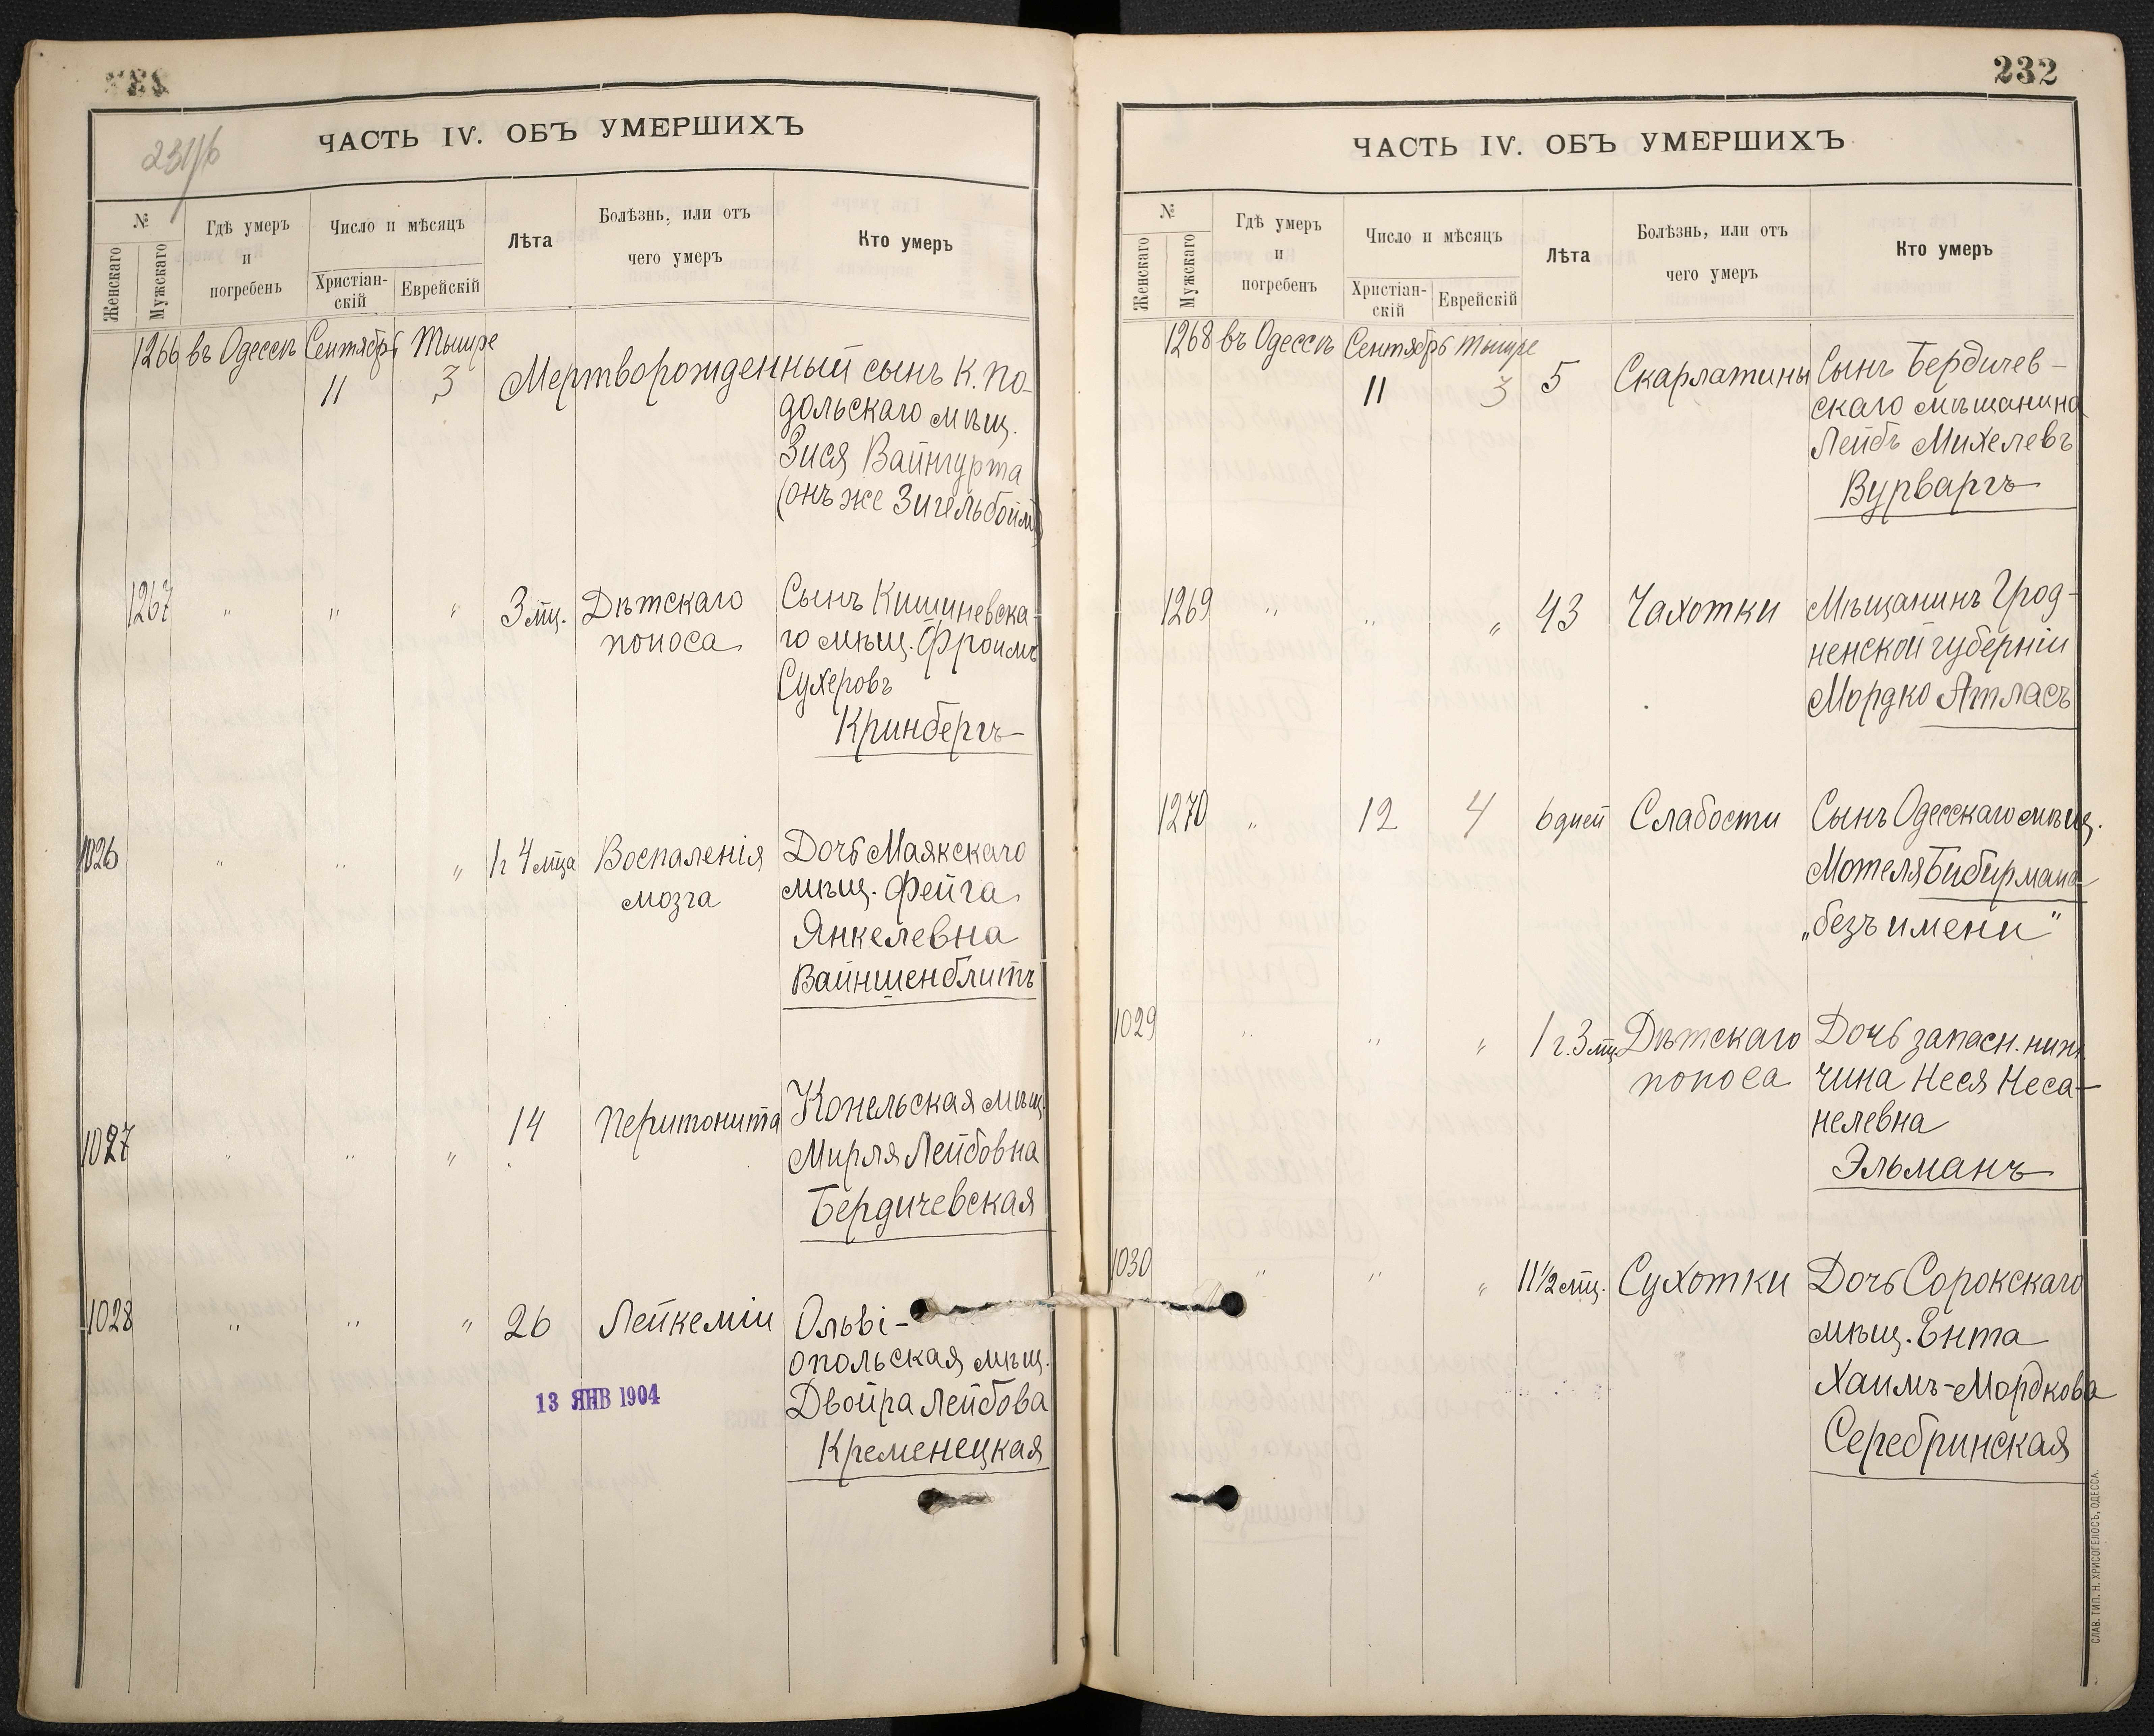 231/б
ЧАСТЬ IV. ОБЪ УМЕРШИХЪ
№
Женскаго
Мужскаго
Гдѣ умеръ
и
погребенъ
Число и мѣсяцъ
Христіан-
скій
Еврейскій
Лѣта
Болѣзнь, или отъ
чего умеръ
Кто умеръ
1266 въ Одессѣ Сентябрь Тышре
11 3 Мертворожденный сынъ К. По-
дольскаго мѣщ.
Зися Вайнгурта
(онъ же Зигельбоймъ)
1267 " " " 3 мц. Дѣтскаго Сынъ Кишиневска-
поноса го мѣщ. Фроимъ
Сухеровъ
Кринбергъ
1026 " " " 1 г 4 мца Воспаленія Дочь Маякскаго
мозга мѣщ. Фейга
Янкелевна
Вайншенблитъ
1027 " " " 14 Перитонита Конельская мѣщ.
Мирля Лейбовна
Бердичевская
1028 " " " 26 Лейкеміи Ольві-
опольская мѣщ.
13 ЯНВ 1904 Двойра Лейбова
Кременецкая
232
ЧАСТЬ IV. ОБЪ УМЕРШИХЪ
№
Женскаго
Мужскаго
Гдѣ умеръ
и
погребенъ
Число и мѣсяцъ
Христіан-
скій
Еврейскій
Лѣта
Болѣзнь, или отъ
чего умеръ
Кто умеръ
1268 въ Одессѣ Сентябрь Тышре
11 3 5 Скарлатины Сынъ Бердичев-
скаго мѣщанина
Лейбъ Михелевъ
Вурваргъ
1269 " " " 43 Чахотки Мѣщанинъ Грод-
ненской губерніи
Мордко Атласъ
1270 " 12 4 6 дней Слабости Сынъ Одесскаго мѣщ.
Мотеля Бибирмана
„безъ имени"
1029 " " " 1 г. 3 мц. Дѣтскаго Дочь запасн. нижн.
поноса чина Неся Неса-
нелевна
Эльманъ
1030 " " " 11 1/2 мц. Сухотки Дочь Сорокскаго
мѣщ. Ента
Хаимъ-Мордкова
Серебринская
СЛАВ. ТИП. Н. ХРИСОГЕЛОСЪ, ОДЕССА.